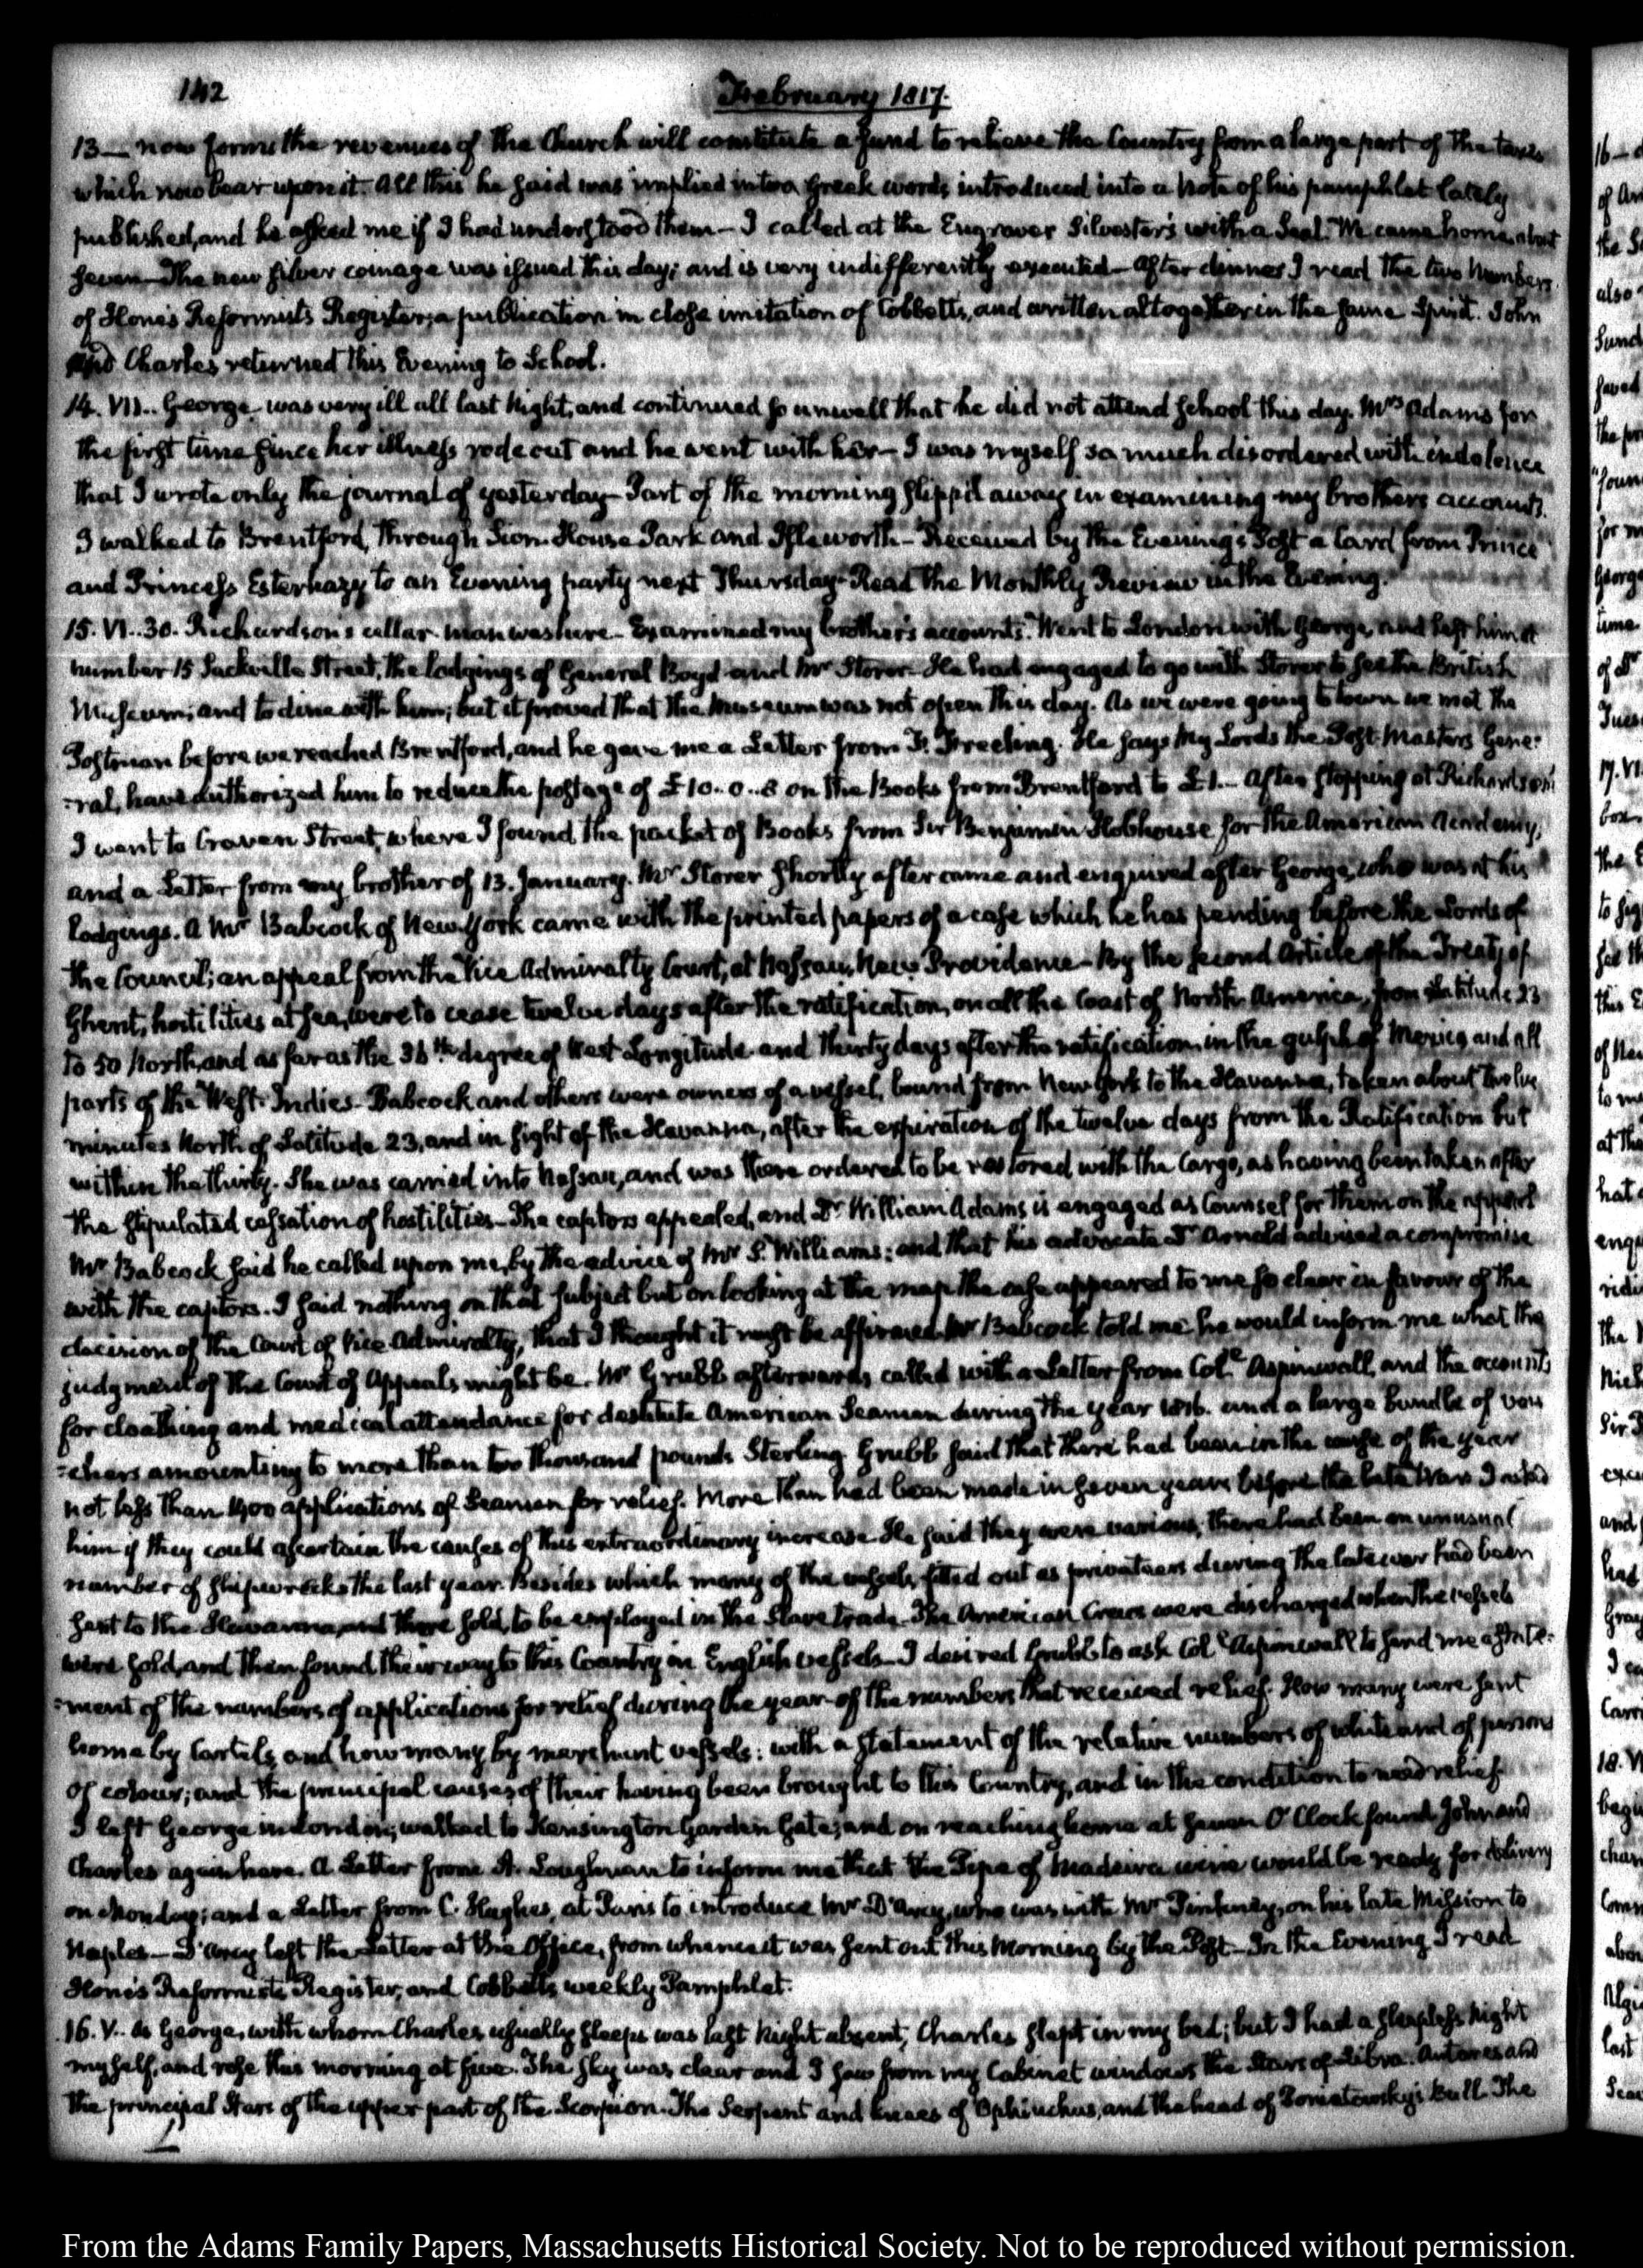 142
February 1817.
13— now forms the revenues of the Church will constitute a fund to relieve the Country from a large part of the taxes
which now bear upon it. All this he said was implied in two Greek words, introduced into a Note of his pamphlet lately
published, and he asked me if I had understood them— I called at the Engraver Silvester's with a Seal. We came home about
seven— The new silver coinage was issued this day; and is very indifferently executed— After dinner I read the two Numbers
of Hone's Reformists Register; a publication in close imitation of Cobbetts, and written altogether in the same Spirit. John
and Charles returned this Evening to School.
14. VII.. George was very ill all last Night, and continued so unwell that he did not attend school this day. Mrs Adams for
the first time since her illness rode out and he went with her— I was myself so much disordered with indolence
that I wrote only the journal of yesterday— Part of the morning slipp'd away in examining my brothers accounts.
I walked to Brentford, through Sion House Park and Isleworth— Received by the Evening's Post a Card from Prince
and Princess Esterhazy to an Evening party next Thursday— Read the Monthly Review in the Evening.
15. VI..30. Richardson's cellar-man was here— Examined my brother's accounts. Went to London with George, and left him at
number 15 Sackville Street, the lodgings of General Boyd and Mr Storer— He had engaged to go with Storer to see the British
Museum; and to dine with him; but it proved that the Museum was not open this day. As we were going to town we met the
Postman before we reached Brentford, and he gave me a Letter from F. Freeling. He says My Lords the Post-Masters Gene:
:ral, have authorized him to reduce the postage of £10..0..8 on the Books from Brentford to £1.— After stopping at Richardson's
I went to Craven Street, where I found the packet of Books from Sir Benjamin Hobhouse for the American Academy,
and a Letter from my brother of 13. January. Mr Storer shortly after came and enquired after George, who was at his
Lodgings. A Mr Babcock of New York came with the printed papers of a case which he has pending before the Lords of
the Council; an appeal from the Vice Admiralty Court, at Nassau, New Providence— By the second Article of the Treaty of
Ghent, hostilities at sea, were to cease twelve days after the ratification, on all the Coast of North America, from Latitude 23
to 50 North, and as far as the 36th degree of West Longitude and thirty days after the ratification in the gulph of Mexico, and all
parts of the West-Indies— Babcock and others were owners of a vessel, bound from New York to the Havanna, taken about twelve
minutes North of Latitude 23, and in sight of the Havanna, after the expiration of the twelve days from the Ratification but
within the thirty. She was carried into Nassau, and was there ordered to be restored with the Cargo, as having been taken after
the stipulated cessation of hostilities— The captors appealed, and Dr William Adams is engaged as Counsel for them on the appeal
Mr Babcock said he called upon me, by the advice of Mr S. Williams: and that his advocate Dr Arnold advised a compromise
with the captors. I said nothing on that subject but on looking at the map the case appeared to me so clear in favour of the
decision of the Court of Vice Admiralty, that I thought it must be affirmed. Mr Babcock told me he would inform me what the
judgment of the Court of Appeals might be. Mr Grubb afterwards called with a Letter from Coll Aspinwall, and the accounts
for cloathing and medical attendance for destitute American Seamen during the year 1816. and a large bundle of vou
:chers amounting to more than two thousand pounds Sterling. Grubb said that there had been in the course of the year
not less than 1400 applications of Seamen for relief. More than had been made in seven years before the late War. I asked
him if they could ascertain the causes of this extraordinary increase. He said they were various; there had been an unusual
number of shipwrecks the last year. Besides which many of the vessels, fitted out as privateers during the late war had been
sent to the Havanna, and there sold, to be employed in the Slave trade. The American Crews were discharged when the vessels
were sold, and then found their way to this Country in English vessels— I desired Grubb to ask Coll Aspinwall to send me a state:
:ment of the numbers of applications for relief during the year— of the numbers that received relief. How many were sent
home by Cartels, and how many by merchant vessels: with a statement of the relative numbers of white and of persons
of colour; and the principal causes of their having been brought to this Country, and in the condition to need relief—
I left George in London; walked to Kensington Garden Gate; and on reaching home at seven O'Clock found John and
Charles again here. A Letter from A. Loughnan to inform me that the Pipe of Madeira wine would be ready for delivery
on Monday; and a Letter from C. Hughes, at Paris to introduce Mr D'Arcy, who was with Mr Pinkney, on his late Mission to
Naples— D'Arcy left the Letter at the Office, from whence it was sent out this Morning by the Post— In the Evening I read
Hone's Reformists Register, and Cobbett's weekly Pamphlet.
16. V.. As George, with whom Charles usually sleeps was last Night absent, Charles slept in my bed; but I had a sleepless Night
myself, and rose this morning at five. The sky was clear and I saw from my Cabinet windows the Stars of Libra. Antares and
the principal Stars of the upper part of the Scorpion. The Serpent and knees of Ophiuchus, and the head of Poniatowsky's Bull. The
From the Adams Family Papers, Massachusetts Historical Society. Not to be reproduced without permission.